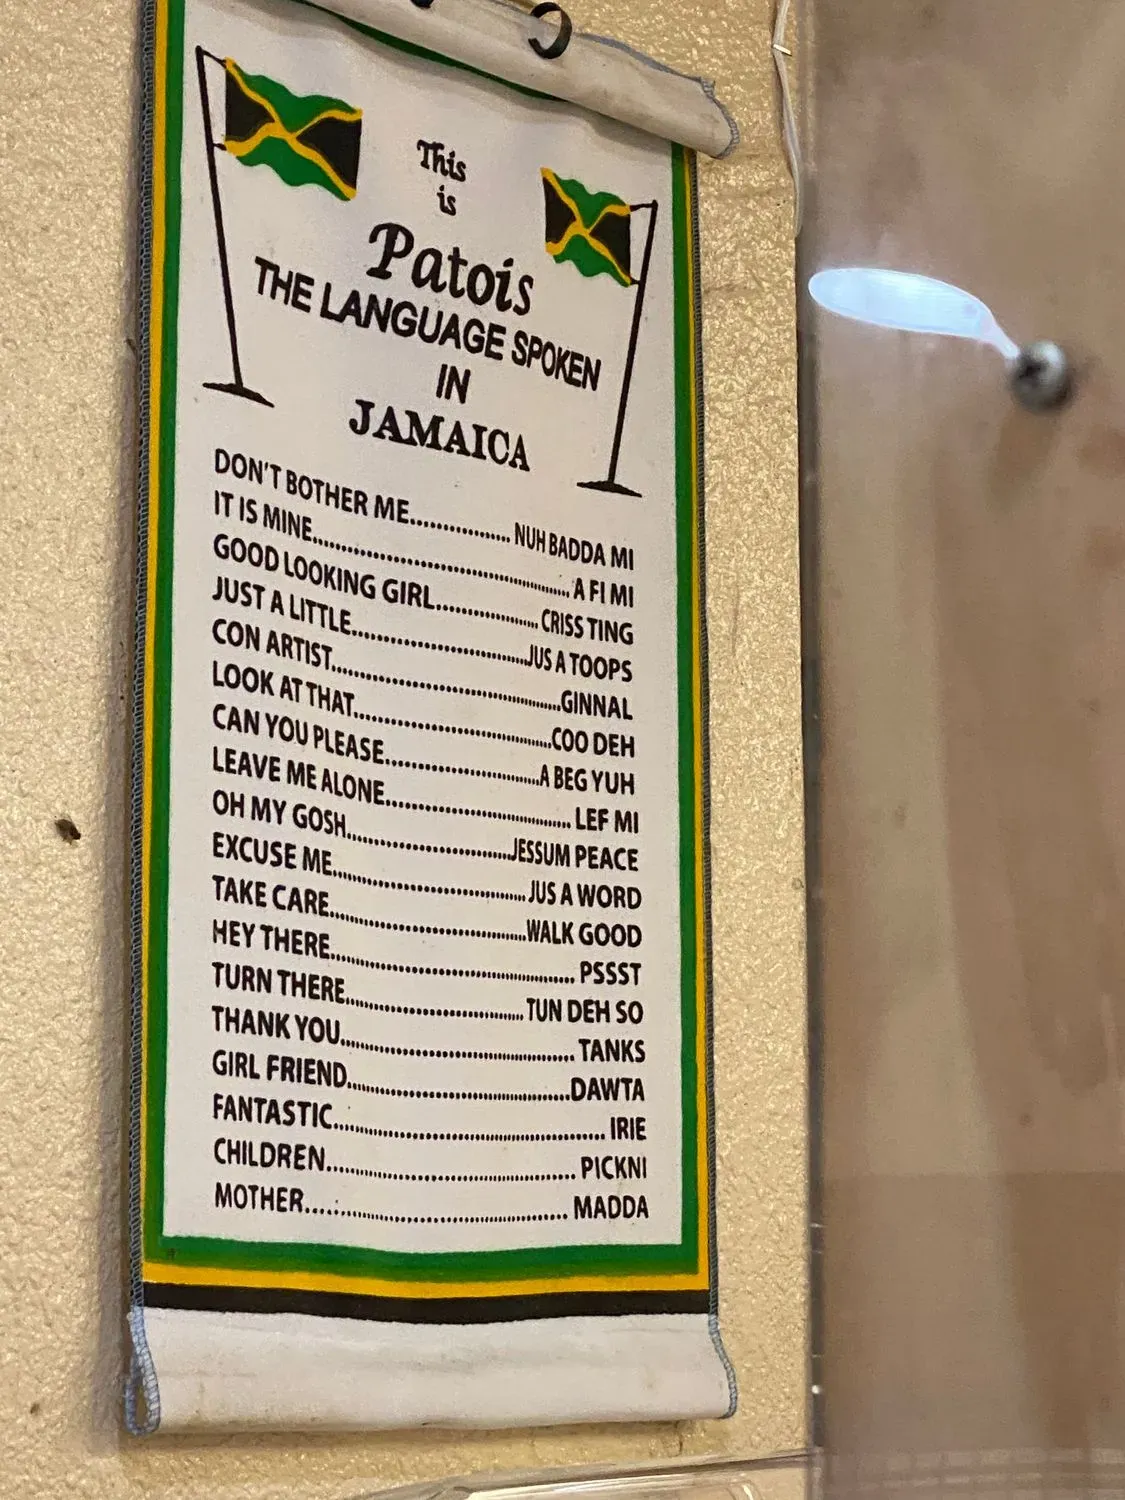 This
is
Patois
THE LANGUAGE SPOKEN
IN
JAMAICA
DON'T BOTHER ME................ NUH BADDA MI
IT IS MINE................ A FI MI
GOOD LOOKING GIRL................ CRISS TING
JUST A LITTLE................JUS A TOOPS
CON ARTIST................GINNAL
LOOK AT THAT................COO DEH
CAN YOU PLEASE................A BEG YUH
LEAVE ME ALONE................ LEF MI
OH MY GOSH................JESSUM PEACE
EXCUSE ME................ JUS A WORD
TAKE CARE................WALK GOOD
HEY THERE................ PSSST
TURN THERE................ TUN DEH SO
THANK YOU................ TANKS
GIRL FRIEND................DAWTA
FANTASTIC................ IRIE
CHILDREN................ PICKNI
MOTHER................ MADDA